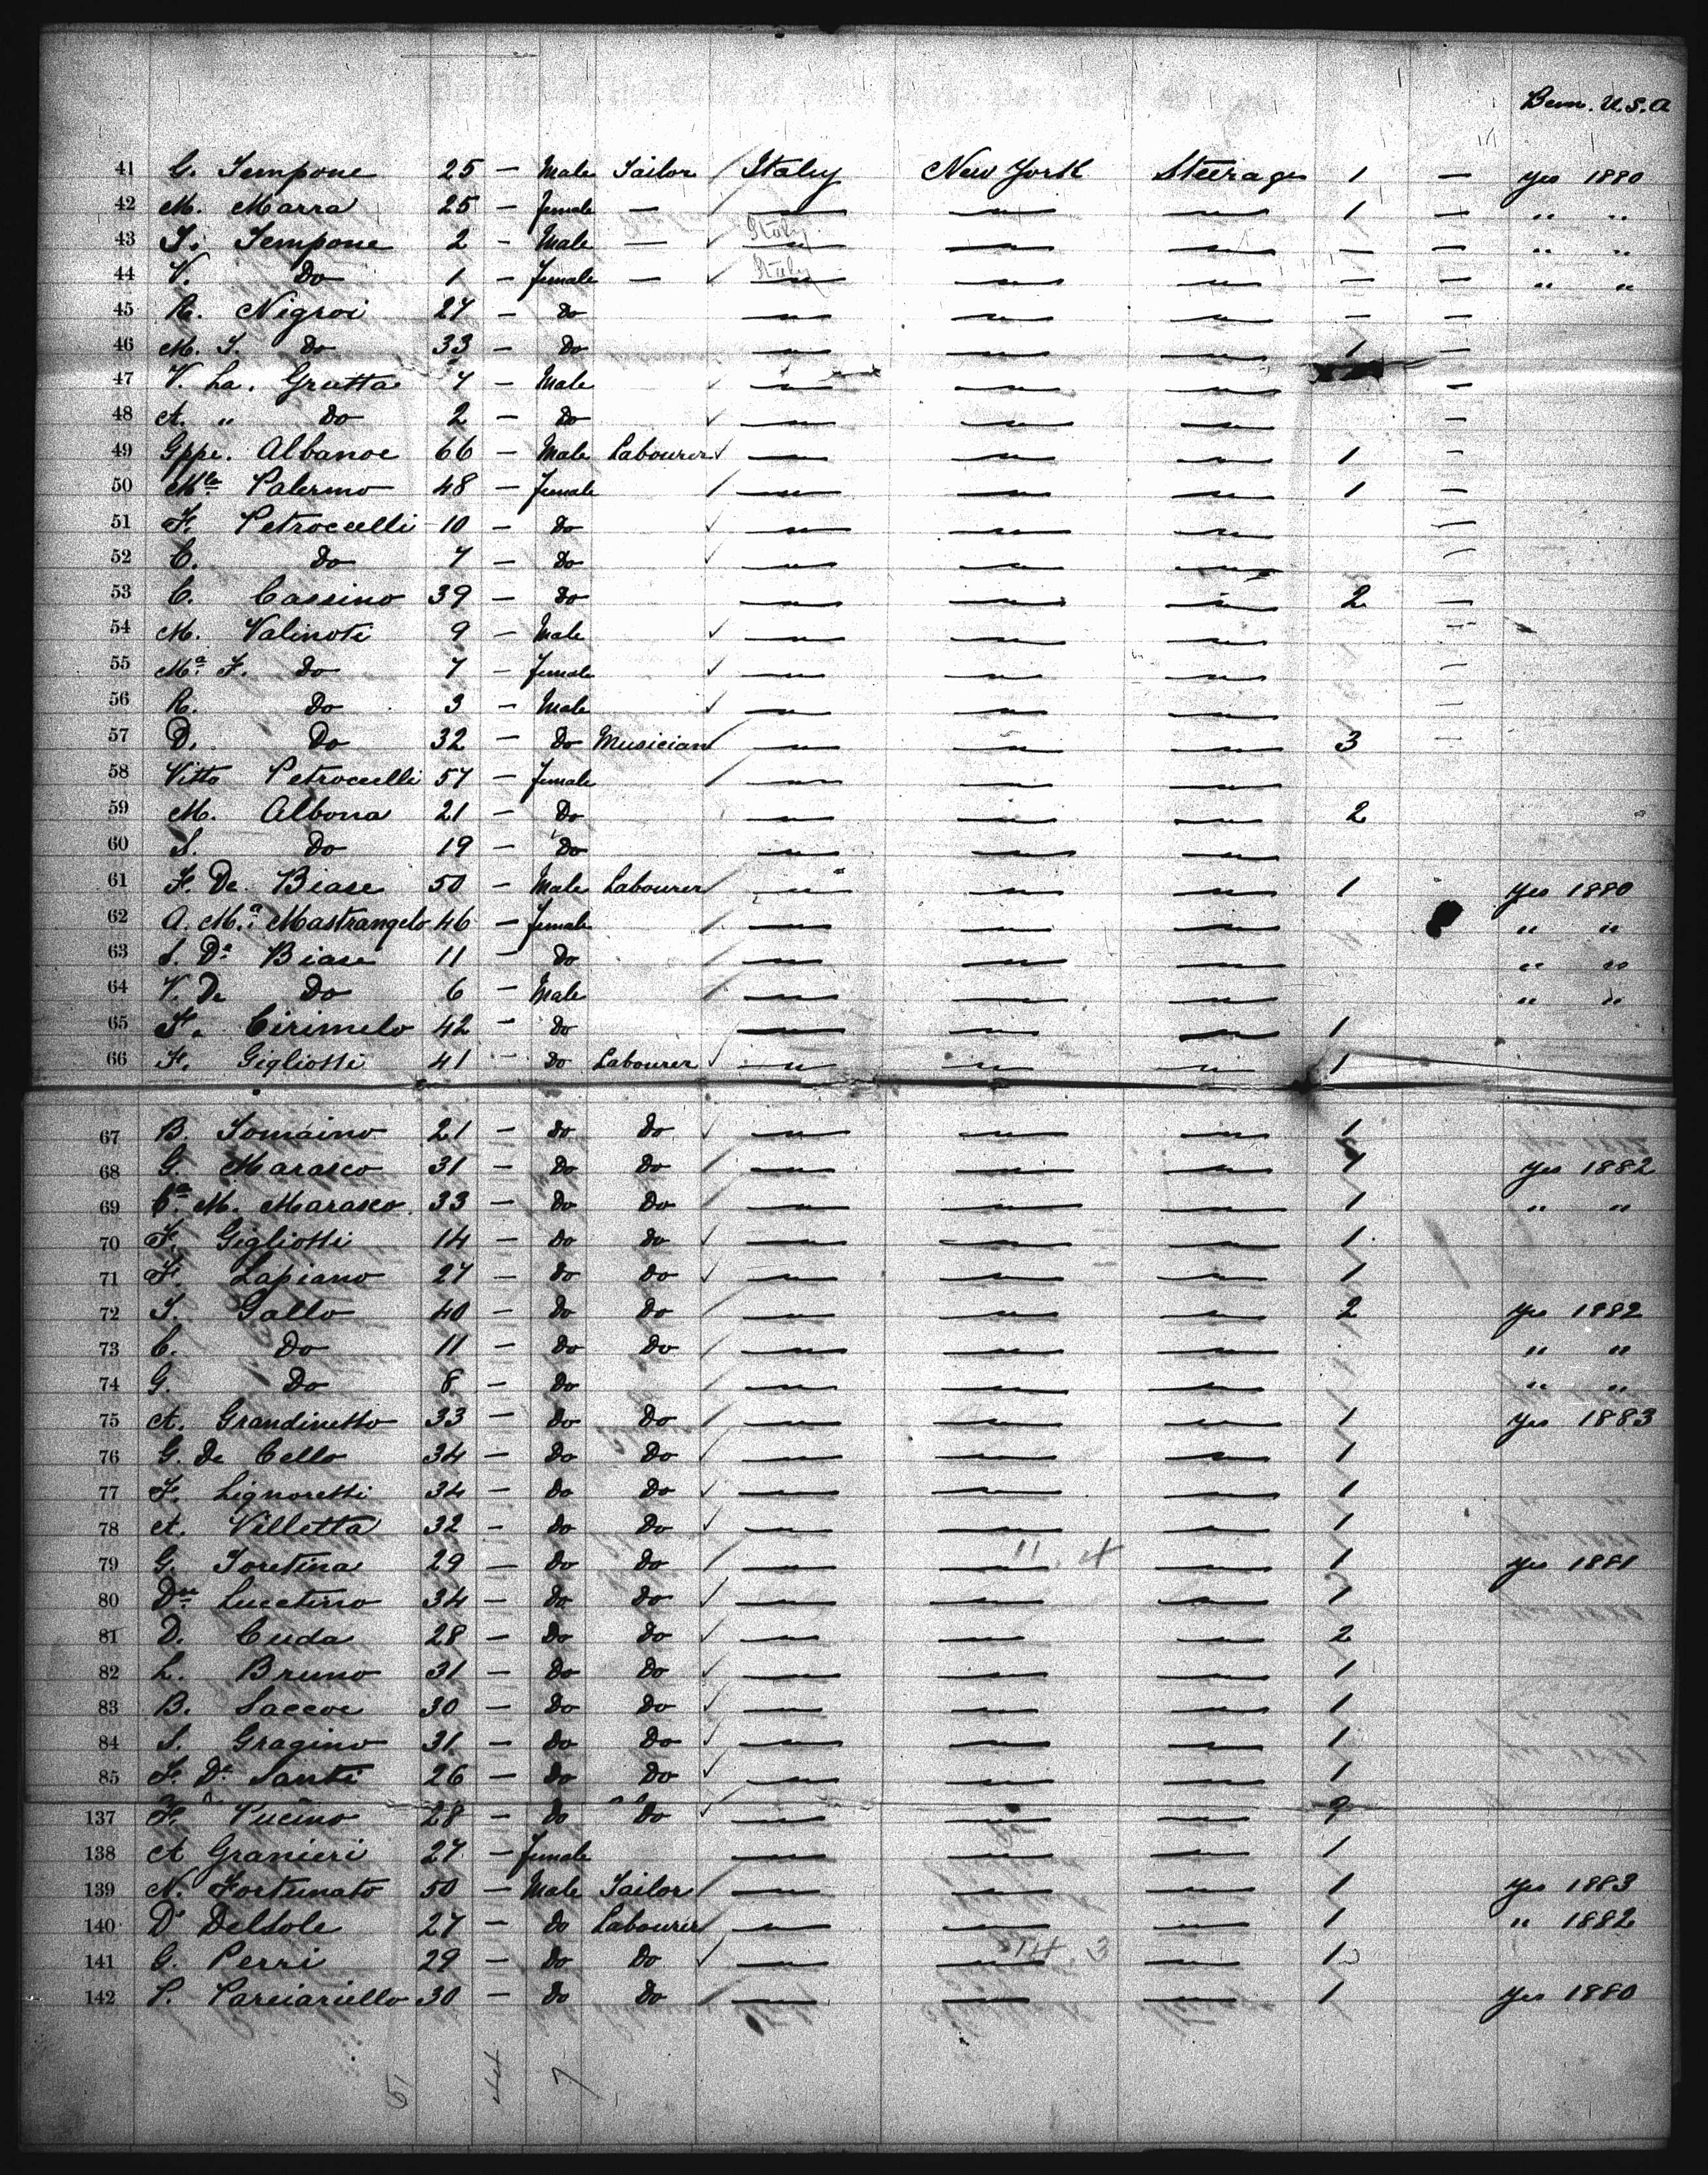 Been. U.S.A
41 G. Tempone 25 — Male Tailor / Italy New York Steerage 1 — Yes 1880
42 M. Marra 25 — female — / — " — — " — — " — 1 — " "
43 T. Tempone 2 — Male — ✓ Italy — " — — " — — " — — — " "
44 V. Do 1 — female — ✓ Italy — " — — " — — " — — — " "
45 R. Nigroi 27 — Do — " — — " — — " — — —
46 M. T. Do 33 — Do — " — — " — — " — 1 —
47 V. La. Grutta 7 — Male ✓ — " — — " — — " — —
48 A. " Do 2 — Do ✓ — " — — " — — " — —
49 Gppe. Albanoe 66 — Male Labourer ✓ — " — — " — — " — 1 —
50 Mla Palermo 48 — female / — " — — " — — " — 1 —
51 F. Petroccelli 10 — Do ✓ — " — — " — — " — —
52 C. Do 7 — Do ✓ — " — — " — — " — —
53 C. Cassino 39 — Do — " — — " — — " — 2 —
54 M. Valinote 9 — Male ✓ — " — — " — — " — —
55 Ma. F. Do 7 — female ✓ — " — — " — — " — —
56 R. Do 3 — Male ✓ — " — — " — — " — —
57 D. Do 32 — Do Musician / — " — — " — — " — 3 —
58 Vitto Petroccelli 57 — female / — " — — " — — " —
59 M. Albona 21 — Do — " — — " — — " — 2
60 S. Do 19 — Do — " — — " — — " —
61 F. De Biase 50 — Male Labourer / — " — — " — — " — 1 Yes 1880
62 A. Ma. Mastrangelo 46 — female / — " — — " — — " — " "
63 S. De Biase 11 — Do / — " — — " — — " — " "
64 V. De Do 6 — Male / — " — — " — — " — " "
65 F. Cirimelo 42 — Do — " — — " — — " — 1
66 F. Gigliotti 41 — Do Labourer ✓ — " — — " — — " — 1
67 B. Tomaino 21 — Do Do ✓ — " — — " — — " — 1
68 G. Marasco 31 — Do Do / — " — — " — — " — 1 Yes 1882
69 M. Marasco 33 — Do Do / — " — — " — — " — 1 " "
70 F. Gigliotti 14 — Do Do ✓ — " — — " — — " — 1
71 F. Lapiano 27 — Do Do ✓ — " — — " — — " — 1
72 T. Gallo 40 — Do Do / — " — — " — — " — 2 Yes 1882
73 C. Do 11 — Do Do / — " — — " — — " — " "
74 G. Do 8 — Do / — " — — " — — " — " "
75 A. Grandinetto 33 — Do Do / — " — — " — — " — 1 Yes 1883
76 G. De Cello 34 — Do Do ✓ — " — — " — — " — 1
77 F. Lignoretti 34 — Do Do ✓ — " — — " — — " — 1
78 A. Villetta 32 — Do Do ✓ — " — — " — — " — 1
79 G. Toretina 29 — Do Do / — " — — " — — " — 1 Yes 1881
80 Luccetino 34 — Do Do ✓ — " — — " — — " — 1
81 D. Cuda 28 — Do Do ✓ — " — — " — — " — 2
82 L. Bruno 31 — Do Do ✓ — " — — " — — " — 1
83 B. Saccoe 30 — Do Do ✓ — " — — " — — " — 1
84 S. Gragino 31 — Do Do ✓ — " — — " — — " — 1
85 F. De Santi 26 — Do Do ✓ — " — — " — — " — 1
137 F. Pucino 28 — Do Do ✓ — " — — " — — " — 2
138 A Granieri 27 — female — " — — " — — " — 1
139 N. Fortunato 50 — Male Tailor / — " — — " — — " — 1 Yes 1883
140 D. Deldole 27 — Do Labourer / — " — — " — — " — 1 " 1882
141 G. Perri 29 — Do Do ✓ — " — — " — — " — 1
142 P. Parciariello 30 — Do Do / — " — — " — — " — 1 Yes 1880
51 44 7